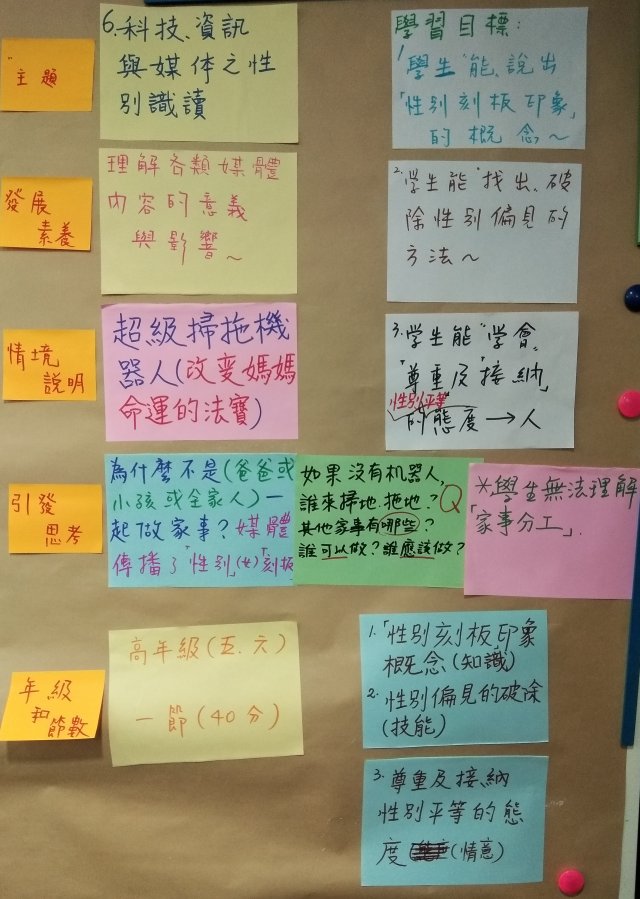 主題
6.科技、資訊
與媒体之性
別識讀
學習目標:
1.學生"能"說出
「性別刻板印象」
的概念~
發展
素養
理解各類媒體
內容的意義
與影響~
2.学生能"找出"破
除性別偏見的
方法~
情境
說明
超級掃拖機
器人(改变媽媽
命運的法寶)
3.学生能"学會"
「尊重及「接納」
性別平等
的態度→人
引發
思考
為什麼不是(爸爸或
小孩或全家人)一
起做家事?媒體
傳播了「性別」(女)「刻板
如果没有机器人,
誰來掃地.拖地? Q
其他家事有哪些?
誰可以做?誰應該做?
*學生無法理解
「家事分工」.
年級
和
節數
高年級(五、六)
一節(40分)
1.「性別刻板」印象
概念(知識)
2.性別偏見的破除
(技能)
3.尊重及接納
性別平等的態
度(情意)